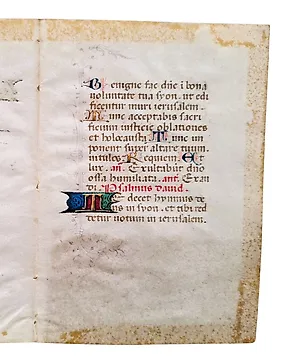 Benigne fac dñe i bona
voluntate tua syon. ut edi
ficentur muri ierusalem.
Tunc acceptabis sacri
ficium iusticie oblationes
et holocausta. Tunc im
ponent super altare tuum
vitulos. Requiem. Et
lux. añ. Exultabũt dño
ossa humiliata. ant. Exau
di. Psalmus David.
Te decet hymnus de
us in syon. et tibi red
detur votum in ierusalem.